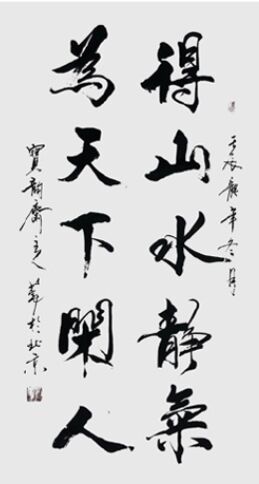 得山水靜氣
為天下閑人
壬辰龍年冬月
寶韻齋主人華於北京